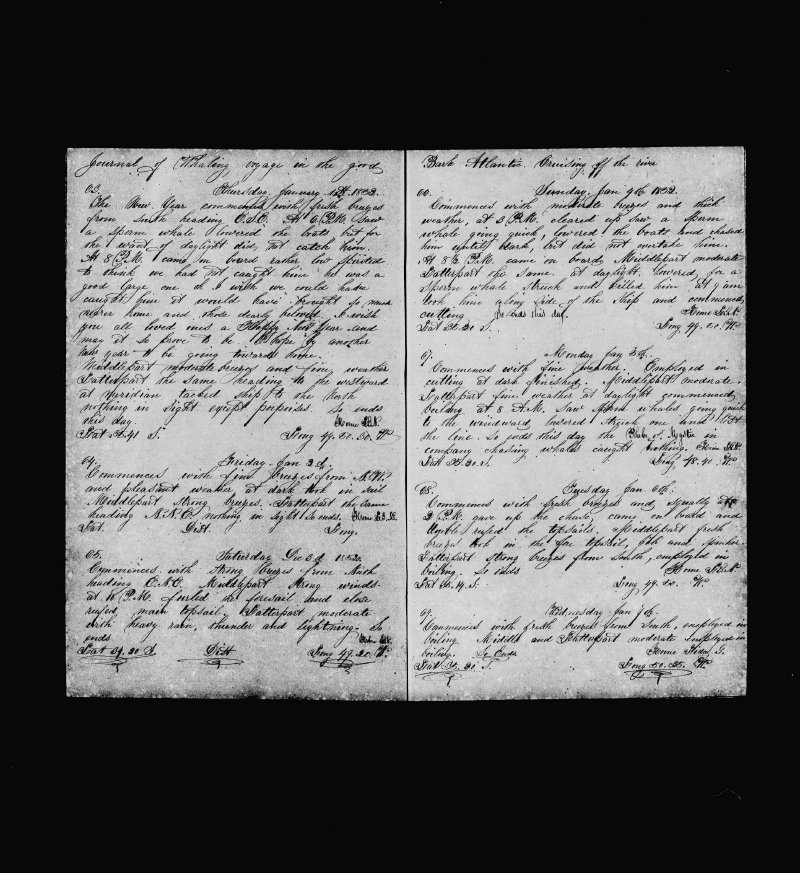 Journal of Whaling voyage in the good
63. Thursday January 1st 1852.
The New Year commences with fresh breezes
from south heading E.S.E. At 6 P.M. Saw
a sperm whale lowered the boats but for
the want of daylight did not catch him.
At 8 P.M. came on board rather low spirited
to think we had not caught him he was a
good large one oh I wish we could have
caught him it would have brought so much
nearer home and those dearly beloved. I wish
you all loved ones a Happy New Year and
may it so prove to be. I hope by another
New year to be going towards home.
Middlepart moderate breezes and fine weather
Latterpart the same heading to the westward
at Meridian tacked ship to the North
nothing in sight except porpoises. So ends
this day.
Lat 35.41 S. Long 49.50.30. W
64. Friday Jan 2d.
Commences with fine breezes from N.W.
and pleasant weather at dark took in sail
Middlepart strong breezes. Latterpart the same
heading N.N.E nothing in sight So ends.
Lat. Ditt. Long.
65. Saturday Dec 3d 1852.
Commences with strong breezes from North
heading E.N.E. Middlepart strong winds
at 10 P.M. furled the foresail and close
reefed main topsail. Latterpart moderate
with heavy rain, thunder and lightning. So
ends
Lat 34.20 S. Ditt Long 49.20. W.
Bark Atlantic. Cruising off the river
66. Sunday. Jan 4th 1852.
Commences with moderate breezes and thick
weather, at 3 P.M. cleared up saw a sperm
whale going quick, lowered the boats and chased
him untill dark, but did not overtake him.
At 8½ P.M. came on board, Middlepart moderate
Latterpart the same. at daylight lowered for a
Sperm whale Struck and killed him at 9 am
took him along side of the Ship and commenced
cutting So ends this day.
Lat 35.30 S. Long 49.50. W
67. Monday Jan 5th.
Commences with fine weather. Employed in
cutting at dark finished. Middlepart moderate.
Latterpart fine weather at daylight commenced
boiling at 8 A.M. Saw Sperm whales going quick
to the windward, lowered struck one and lost
the line. So ends this day the Bark of Mystic in
company chasing whales caught nothing.
Lat 35.30 S. Long 48.40. W
68. Tuesday Jan 6th.
Commences with fresh breezes and squally at
2 P.M. gave up the chase, came on board and
double reefed the topsails. Middlepart fresh
breezes took in the fore topsail, jib and spanker.
Latterpart strong breezes from South, employed in
boiling. So ends
Lat 35.14 S. Long 49.50. W
69. Wednesday Jan 7th.
Commences with fresh breezes from South, employed in
boiling Middle and Latterpart moderate employed in
boiling. So Ends
Lat 35.21 S. Long 50.35. W.